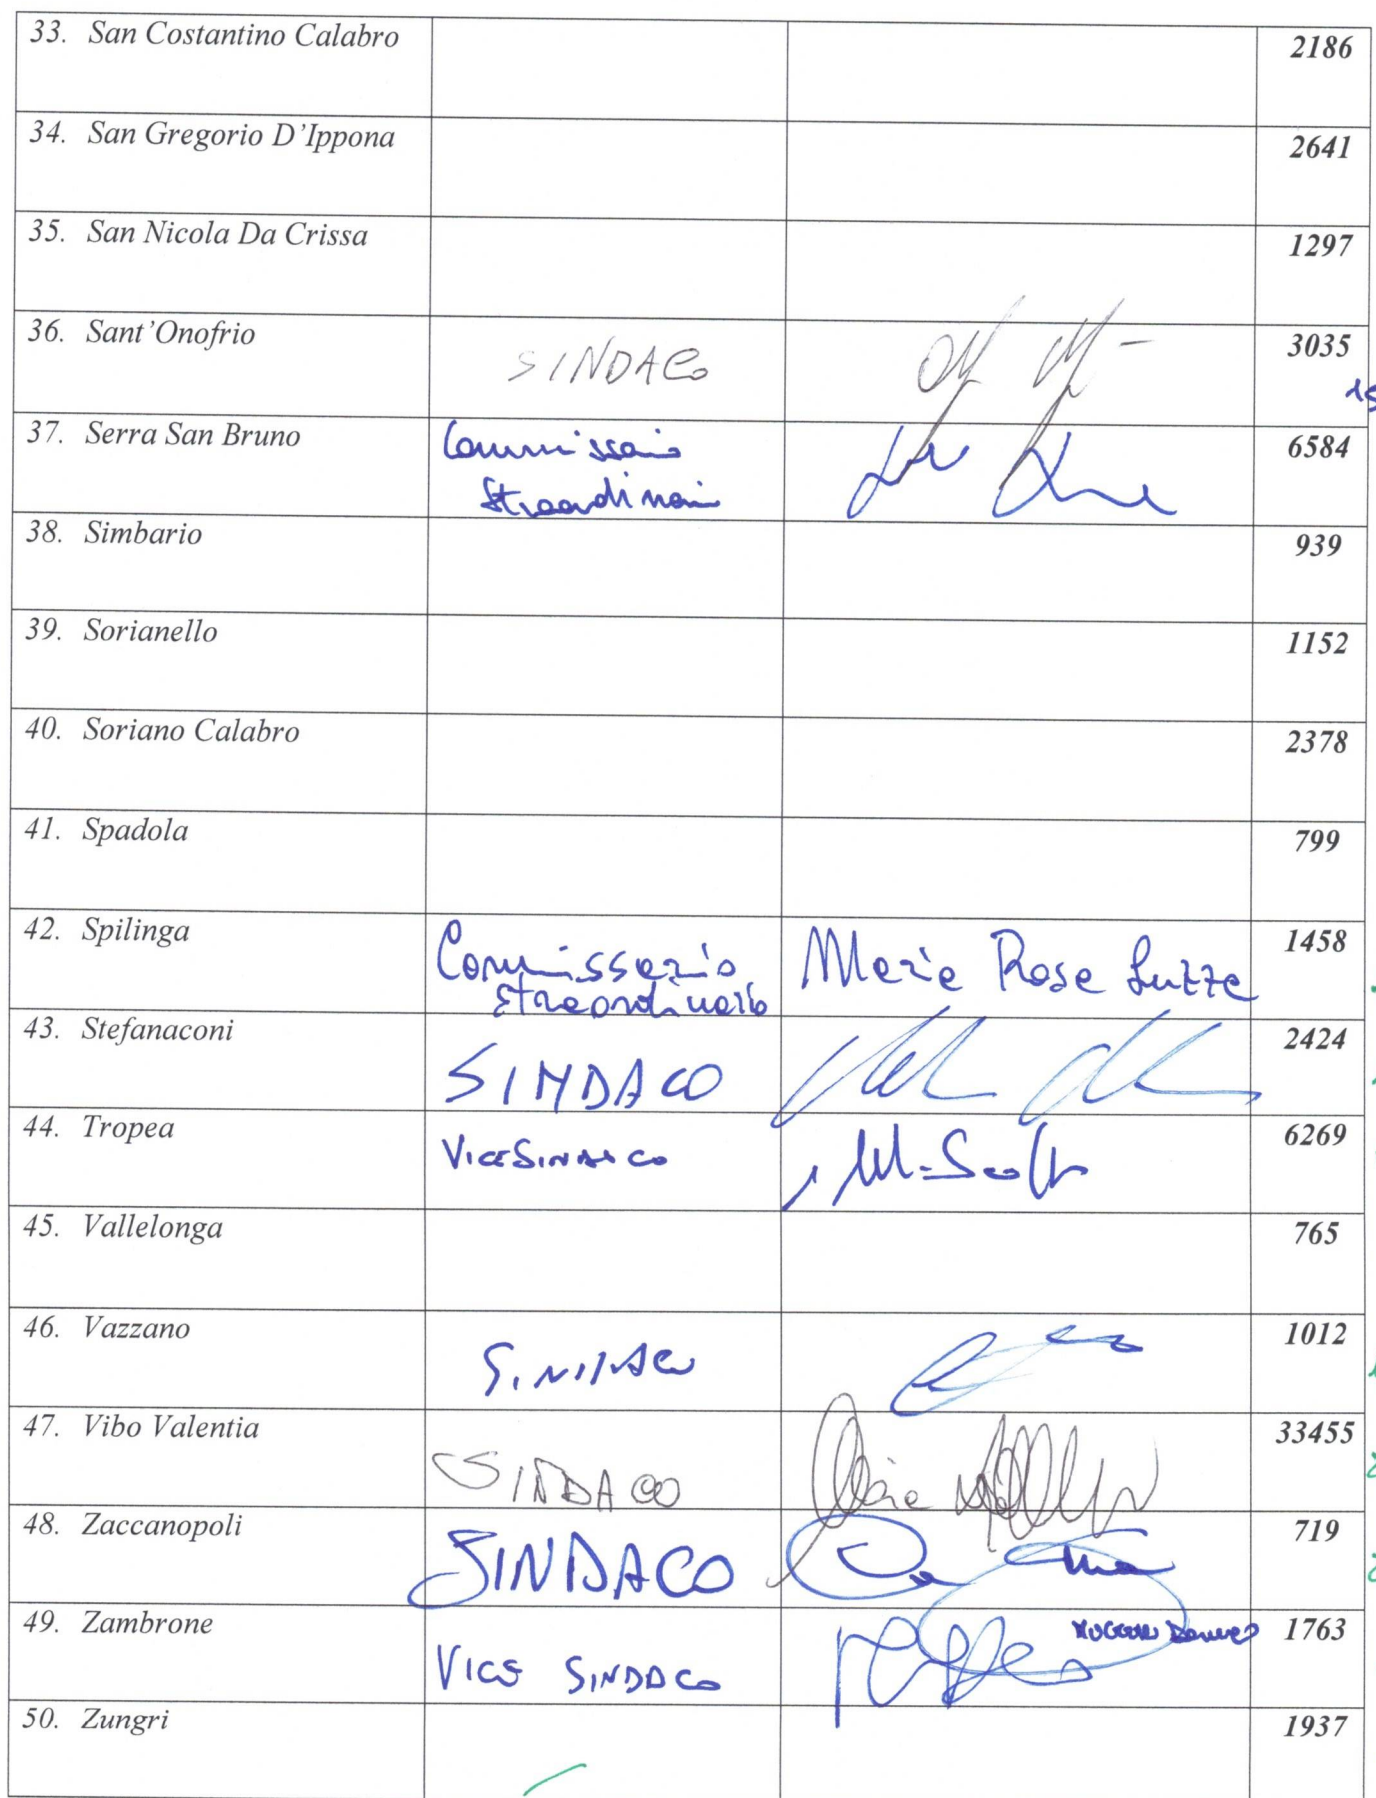 33. San Costantino Calabro 2186
34. San Gregorio D'Ippona 2641
35. San Nicola Da Crissa 1297
36. Sant'Onofrio SINDACO 3035
37. Serra San Bruno Commissario 6584
Straordinario
38. Simbario 939
39. Sorianello 1152
40. Soriano Calabro 2378
41. Spadola 799
42. Spilinga Commissario Maria Rosa Luzza 1458
Straordinario
43. Stefanaconi SINDACO 2424
44. Tropea VICESINDACO 6269
45. Vallelonga 765
46. Vazzano SINDACO 1012
47. Vibo Valentia SINDACO 33455
48. Zaccanopoli SINDACO 719
49. Zambrone VICE SINDACO 1763
50. Zungri 1937